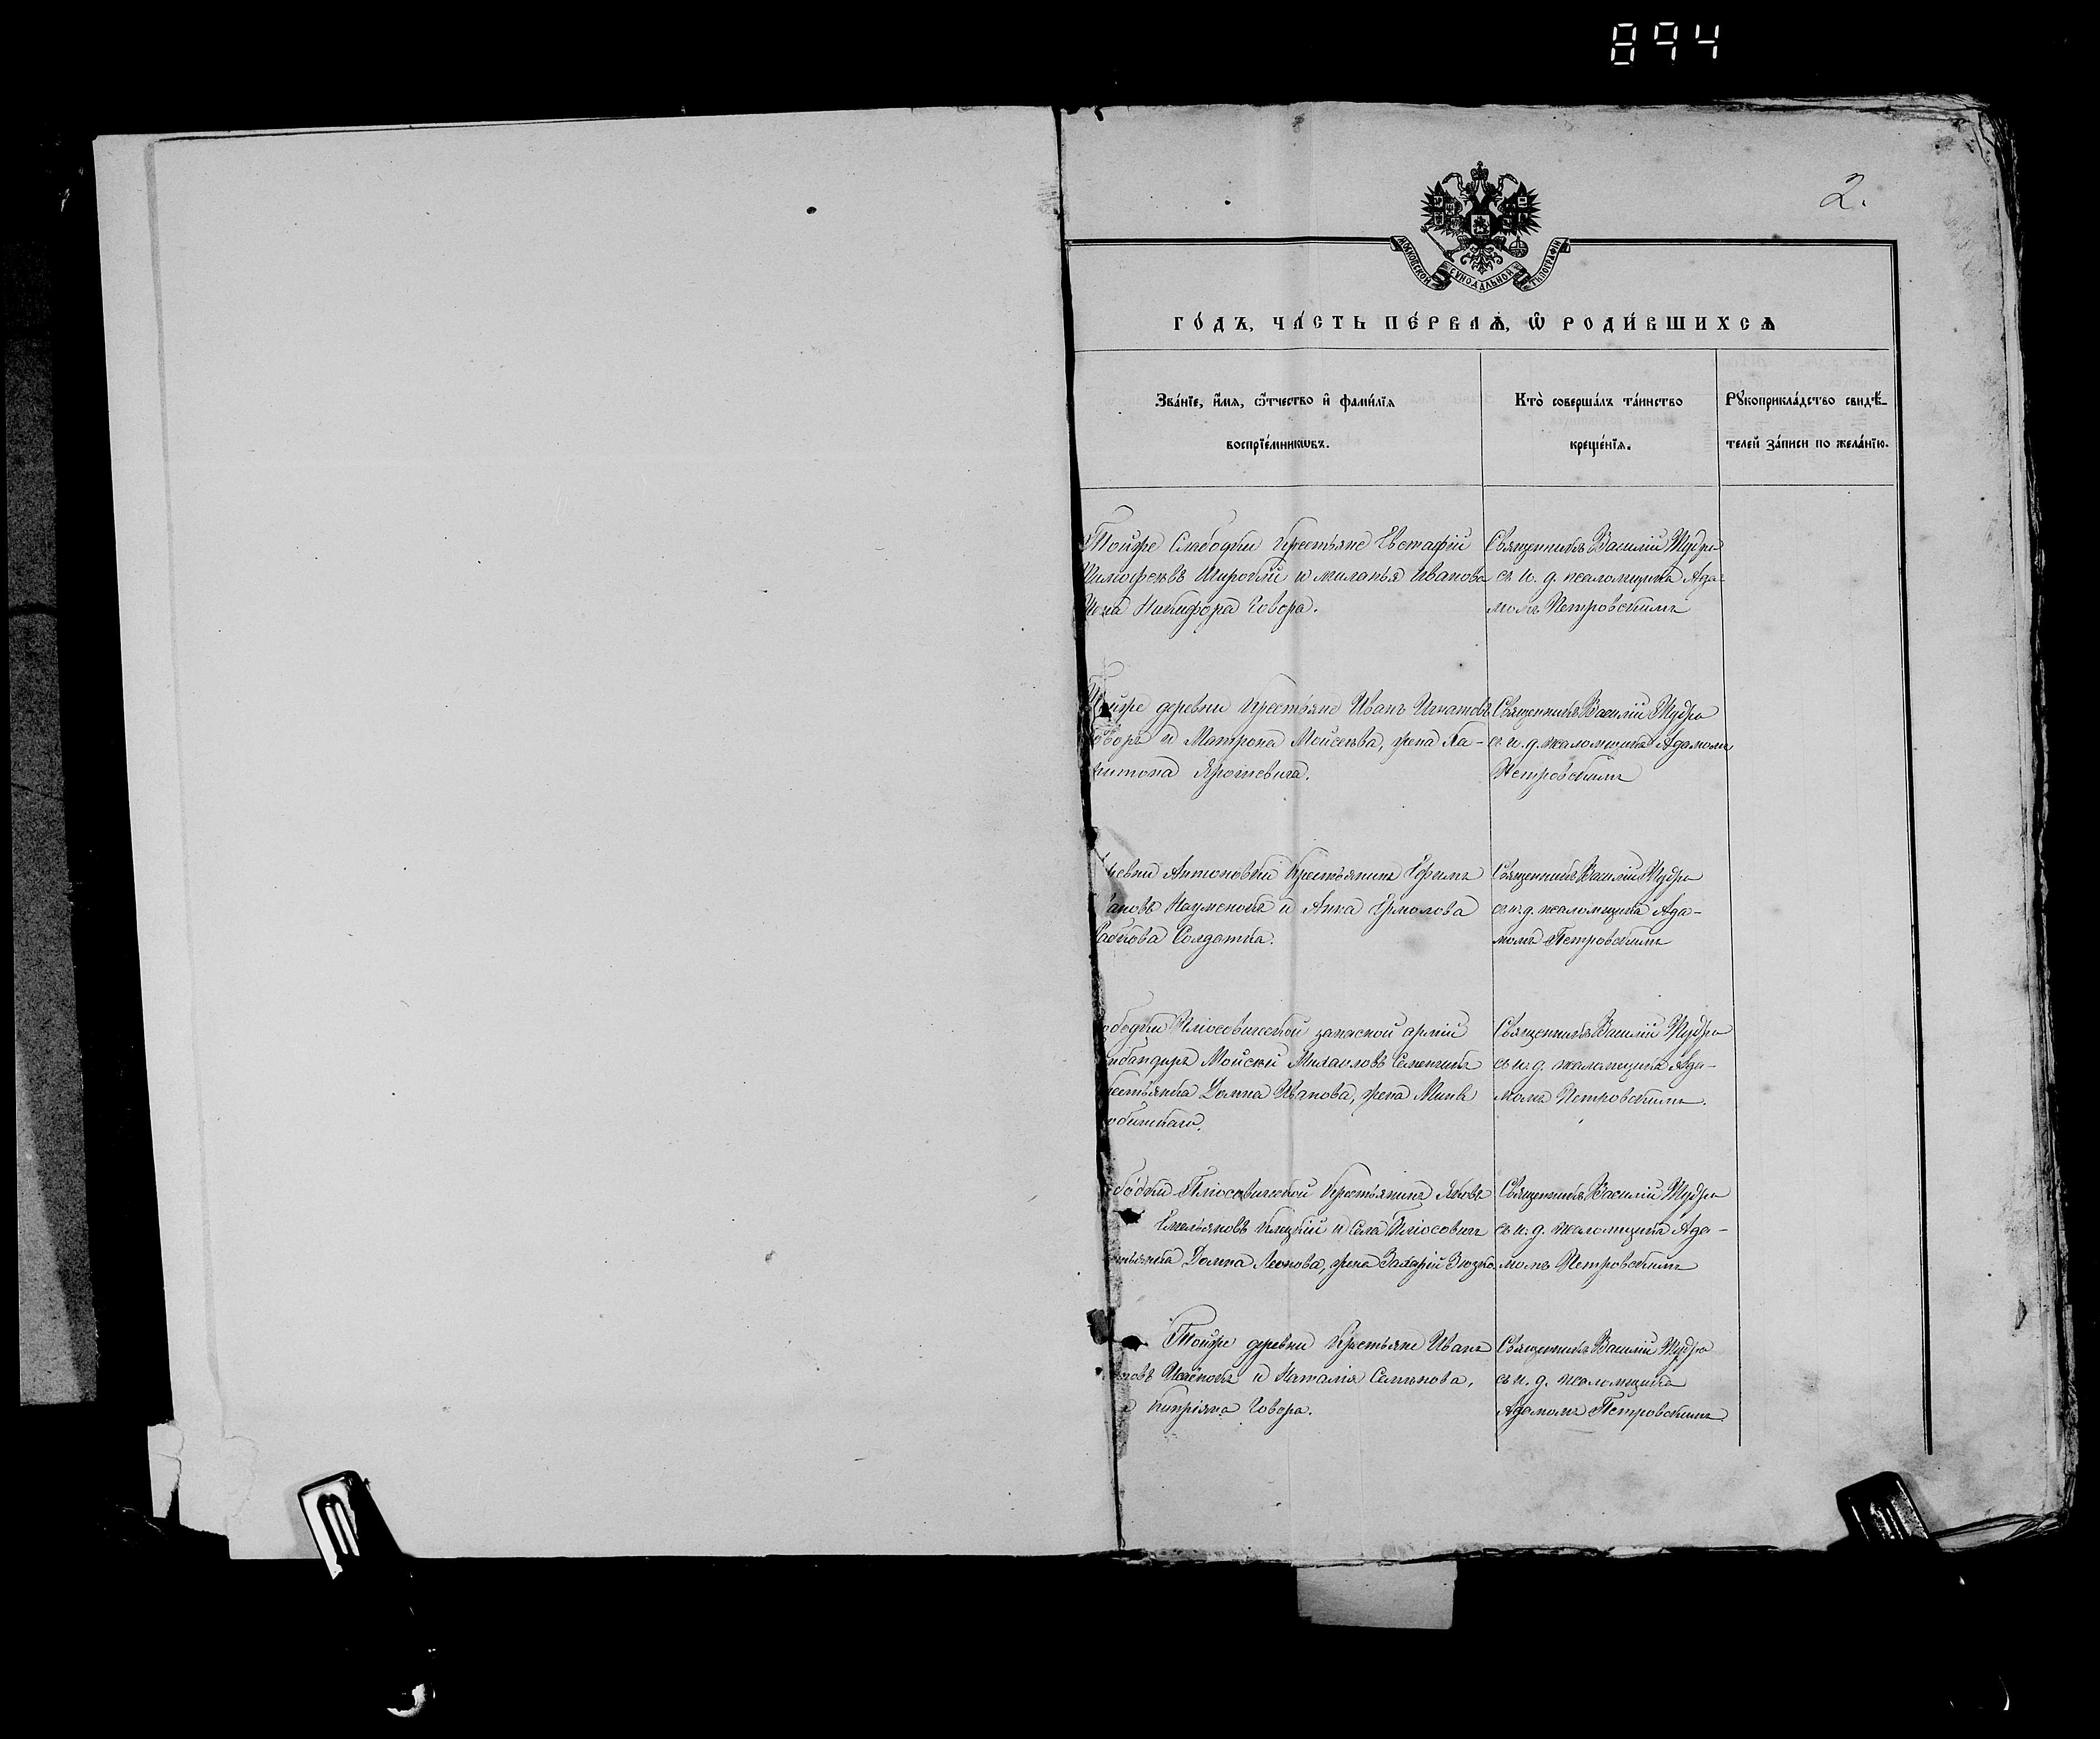 894
2.
МОСКОВСКОЙ СѴНОДАЛЬНОЙ ТИПОГРАФІИ
ГО́ДЪ, ЧА́СТЬ ПЕ́РВАѦ, Ѽ РОДИ́ВШИХСѦ
Зва́нїе, и҆́мѧ, ѻ҆́тчество и҆ фами́лїѧ
воспрїе́мникѡвъ.
Кто̀ соверша́лъ та́инство
креще́нїѧ.
Рꙋкоприкла́дство свидѣ́-
телей за́писи по жела́нїю.
Тойже Слободки крестьяне Евстафій
Тимофеевъ и миланья Иванова
жена Никифора Говора.
Священникъ Василій Мудро
съ и. д. псаломщика Ада-
момъ Петровскимъ
Тойже деревни крестьяне Иванъ Игнатовъ
Говоръ и Матрона Моисеева, жена Ха-
ритона Ярошевича.
Священникъ Василій Мудро
съ и. д. псаломщика Адамомъ
Петровскимъ
Антоновки крестьянинъ Ефимъ
Науменокъ и Анна Ермолова
Солдатка.
Священникъ Василій Мудро
съ и. д. псаломщика Ада-
момъ Петровскимъ
Плюсовичской запасной арміи
Мойсей Михаиловъ Семенчикъ
Домна Иванова, жена Мины
Священникъ Василій Мудро
съ и. д. псаломщика Ада-
момъ Петровскимъ.
Плюсовичской крестьянинъ Яковъ
Емельяновъ Клецкій и села Плюсовичъ
Домна Леонова, жена Захарій Зюзко
Священникъ Василій Мудро
съ и. д. псаломщика Ада-
момъ Петровскимъ
Тойже деревни крестьяне Иванъ
и Наталія Семенова,
Кипріяна Говора.
Священникъ Василій Мудро
съ и. д. псаломщика
Адамомъ Петровскимъ